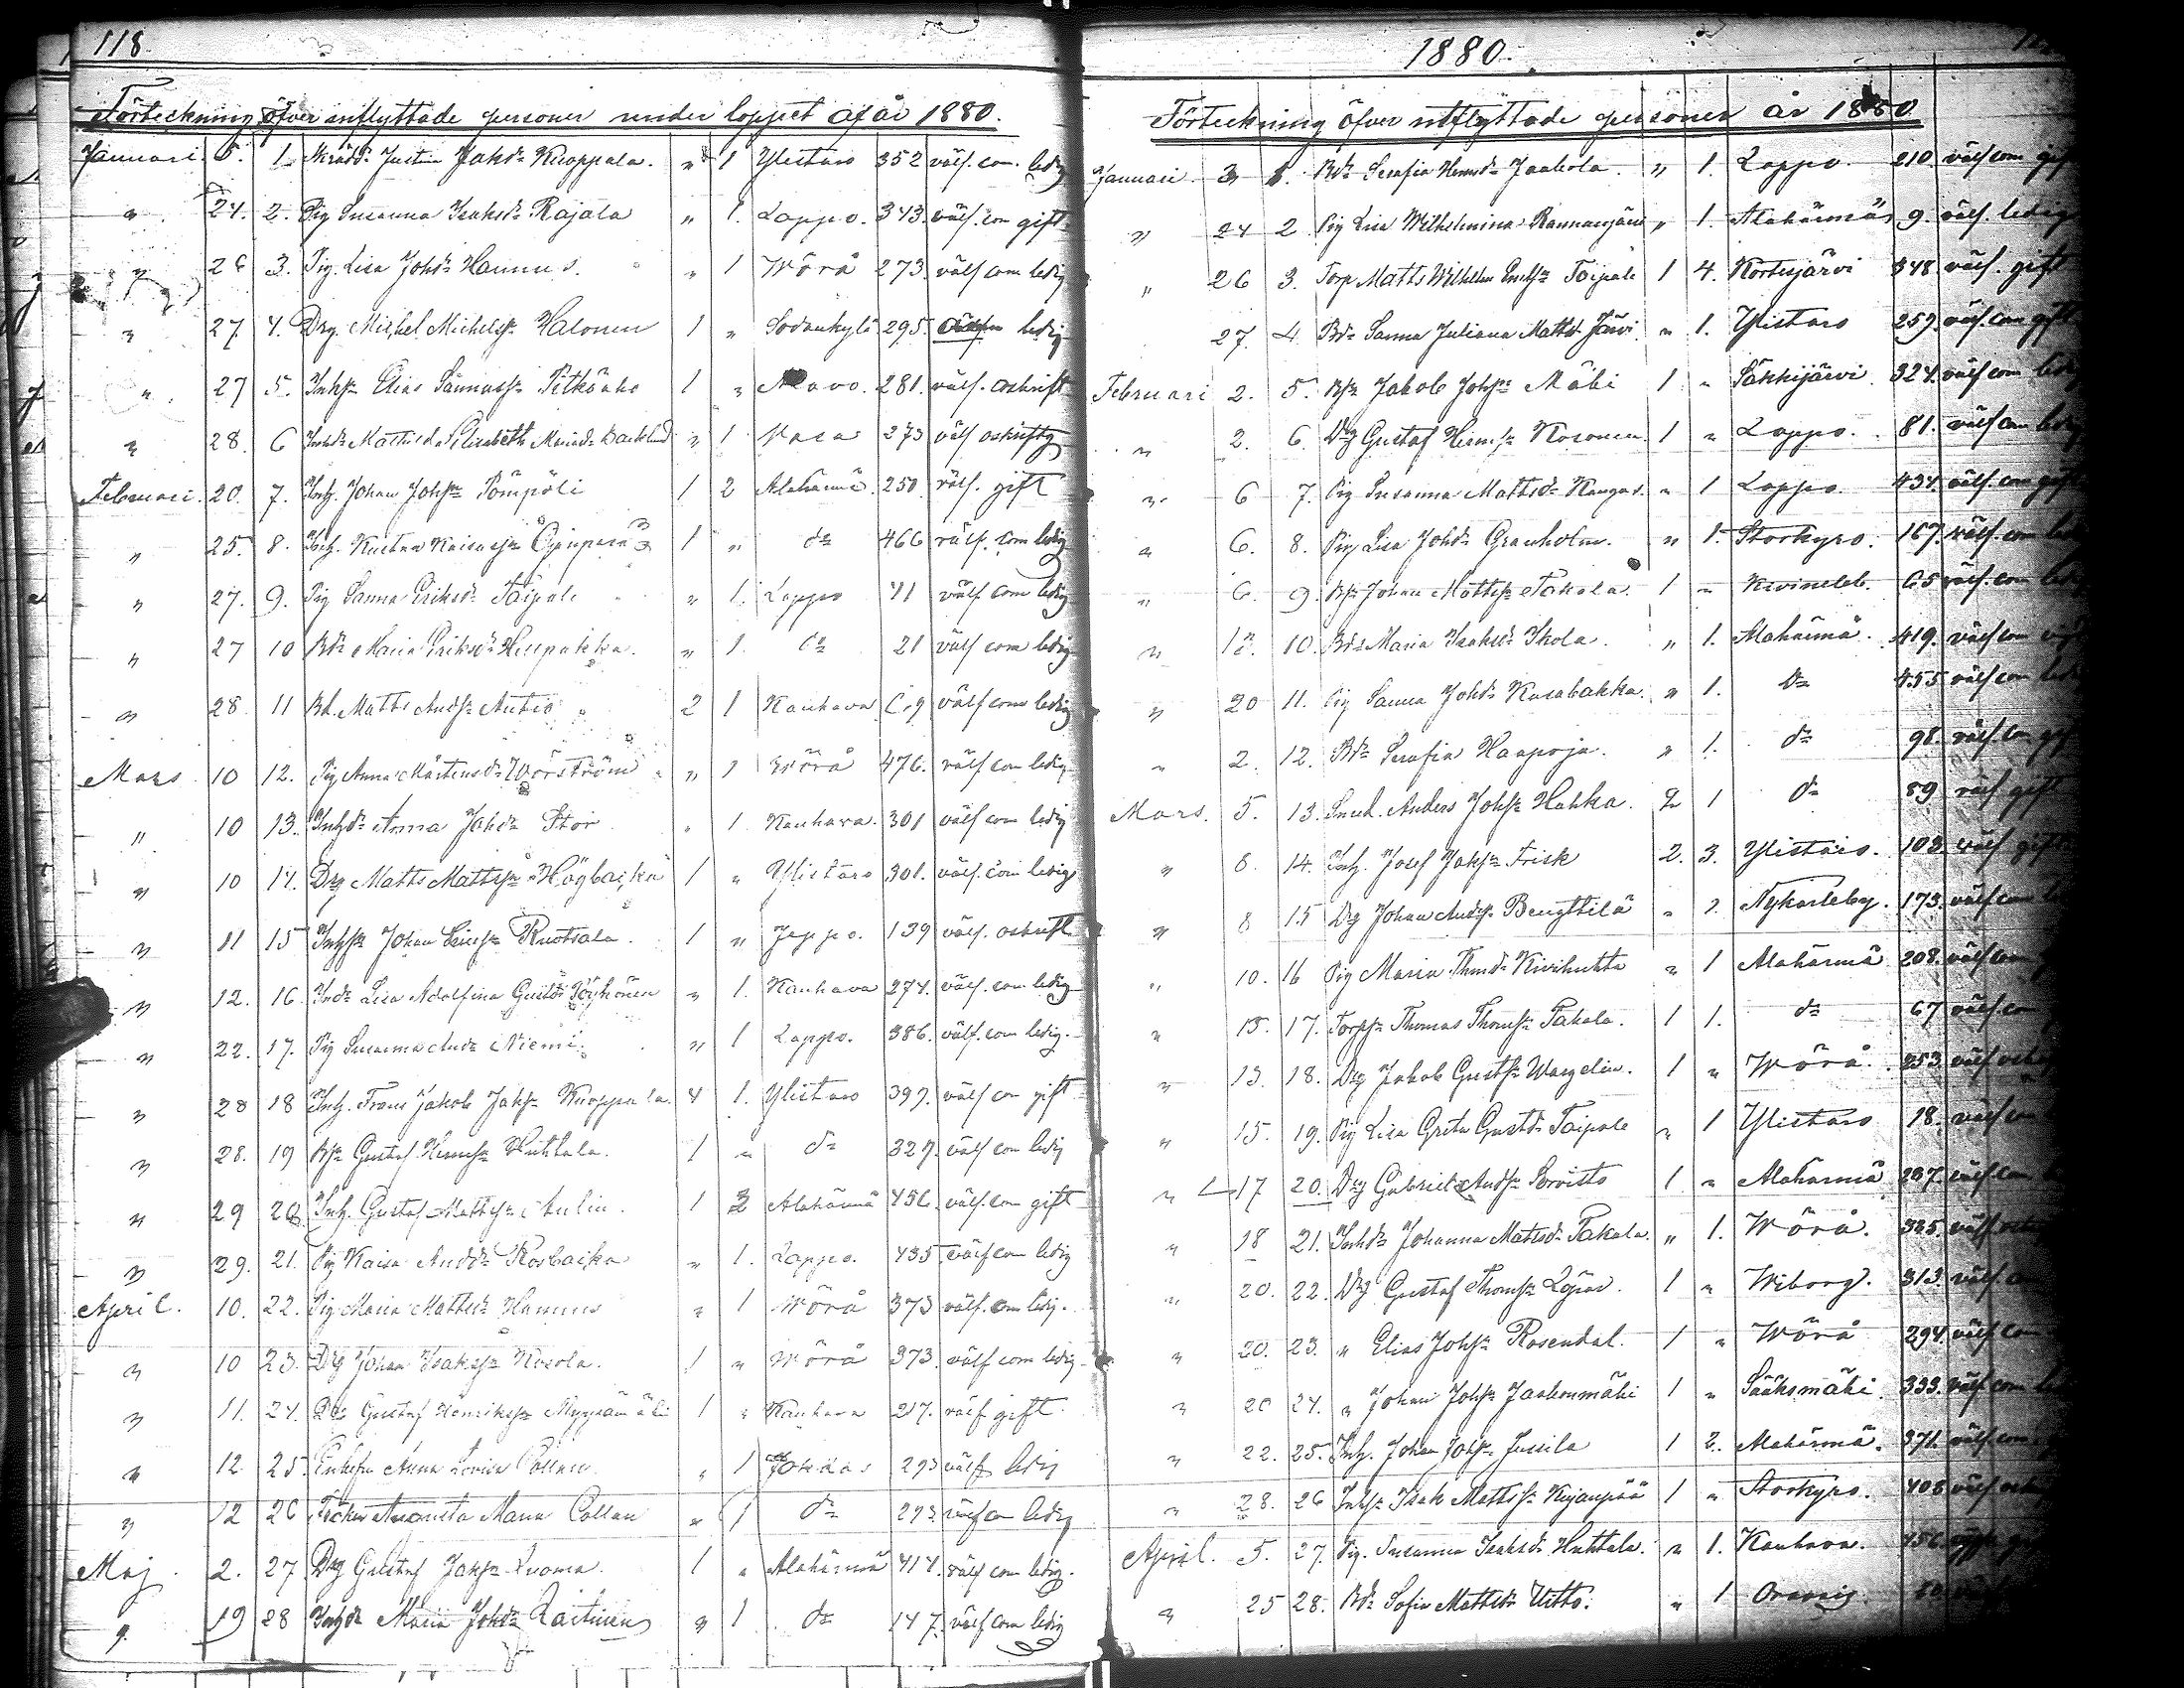 118.
Förteckning öfver inflyttade personer under loppet af år 1880.
Januari 5. 1. Justina Jakdr Knoppala. " 1 Ylistaro 352 välf. com. ledig
" 24. 2. Pig Susanna Isaksdr Rajala " 1. Lappo. 343. välf. com gift
" 26 3. Pig. Lisa Johdr Hannus. " 1 Wörå 273. välf com ledig
" 27 4. Drg. Michel Michelsn Halonen 1 " Sodankylä 295. ledig
" 27 5. Inhsn Elias Pitkäaho 1 " Alavo. 281. välf. oskrift
" 28. 6 Mathilda Elisabeth Backlund " 1 Vasa 273 välf oskriftg
Februari. 20. 7. Inh. Johan Johsn Pömpöli 1 2 Alahärmä. 250 välf. gift
" 25. 8. Inh. Kustaa 1 " do 466 välf. com ledig
" 27. 9. Pig Sanna Eriksdr Taipale " 1. Lappo 41 välf com ledig
" 27 10 Bdr Maria Eriksdr " 1. do 21 välf com ledig
" 28. 11 Bd. Matts Andsn Antio 2 1 Kauhava välf com ledig
Mars 10 12. Pig Anna Mårtensdr Wörström " 1 Wörå 476. välf com ledig
" 10 13. Inhdr Anna Johdr Stor " 1 Kauhava. 301 välf com ledig
" 10 14. Drg Matts Mattssn Högbacka 1 " Ylistaro 301. välf. com ledig
" 11 15 Inhsn Johan Ruotsala. 1 " Jeppo. 139 välf. oskrift
" 12. 16. Lisa Adolfina Gustdr Pöyhönen " 1. Kauhava 274. välf. com ledig
" 22. 17. Pig Susanna Anddr Niemi. " 1 Lappo. 386. välf. com ledig.
" 28 18 Inh. Frans Jakob Jaksn Knoppala. 4 1. Ylistaro 397. välf com gift
" 28. 19 Bsn Gustaf Huhtala. 1 " do 327. välf com ledig
" 29 20 Inh. Gustaf Mattssn Aulin. 1 3 Alahärmä 456. välf. com gift
" 29. 21. Pig Kaisa Anddr Rosbacka " 1. Lappo. 435 välf com ledig
April. 10. 22. Pig Maria Mattsdr Hannus " 1 Wörå 373 välf. com ledig.
" 10 23. Drg Johan Isakssn Kosola. 1 " Wörå 373. välf com ledig
" 11. 24. Gustaf Henrikssn 1 " Kauhava 217. välf gift
" 12. 25. Anna Lovisa Collan. " 1 Jokkas 293 välf ledig
" 12 26 Maria Collan " 1 do 293 välf com ledig
Maj. 2. 27 Drg Gustaf Jaksn Luoma. 1 " Alahärmä 414. välf com ledig.
" 19 28 Inhdr Maria Johdr Laitinen " 1 do 147. välf com ledig
1880.
Förteckning öfver utflyttade personer år 1880
Januari 3 1. Bdr Serafia Jaakola. " 1. Lappo. 210. välf com
" 24 2 Pig Lisa Wilhelmina Rannanjärvi " 1. Alahärmä 9. välf. ledig
" 26 3. Torp Matts Wilhelm Taipale 1 4. Kortesjärvi 348 välf. gift
27. 4 Bdr Sanna Juliana Mattsdr Järvi. " 1. Ylistaro 259. välf. com gift
Februari 2. 5. Bsn Jakob Johsn Mäki 1 " Säkkijärvi. 324. välf com
" 2. 6. Drg Gustaf Kosonen. 1 " Lappo. 81. välf com
" 6 7. Pig Susanna Mattsdr Kangas. " 1 Lappo. 434. välf. com gift
" 6. 8. Pig Lisa Johdr Granholm. " 1. Storkyro. 167. välf. com
" 6. 9. Bsn Johan Mattssn Takala. 1 " 65 välf. com
" 12. 10. Bdr Maria Isaksdr Ikola. " 1. Alahärmä. 419. välf com
" 20 11. Pig Sanna Johdr " 1. do 455 välf com
" 2. 12. Bdr Serafia Haapoja. " 1. do 98. välf. com
Mars. 5. 13. Anders Johsn Hahka. 2 1 do 89 välf gift
" 8. 14. Inh. Josef Johsn Frisk 2. 3. Ylistaro. 102. välf gift
" 8 15 Drg Johan Andsn Bengttilä " 1. Nykarleby. 173. välf com
" 10. 16 Pig Maria Thmdr Kivihuhta " 1 Alahärmä 208. välf com
" 13. 17. Torpsn Thomas Thomsn Takala. 1 1. do 67 välf com
" 13. 18. Drg Jakob Gustfsn Wargelin. 1 " Wörå. 253. välf
" 15. 19. Pig Lisa Greta Gustdr Taipale " 1 Ylistaro 18. välf com
" 17 20. Drg Gabriel Andsn Sorvisto 1 " Alahärmä 207. välf. com
" 18 21. Inhdr Johanna Mattsdr Takala. " 1. Wörå. 325. välf.
" 20. 22. Drg Gustaf Thomsn 1 " Wiborg. 313. välf.
" 20. 23. " Elias Johsn Rosendal. 1 " Wörå 294. välf com
" 20 24. " Johan Johsn Jaakonmäki 1 " Sääksmäki. 333. välf com
" 22. 25. Inh. Johan Johsn Jussila 1 2. Alahärmä. 371. välf com
" 28. 26 Inhsn Isak Mattssn Kujanpää 1 " Storkyro. 408 välf
April. 5. 27. Pig. Susanna Isaksdr Huhtala. " 1. Kauhava. 456
" 25 28. Bdr Sofia Mattsdr Uitto. " 1 Oravais